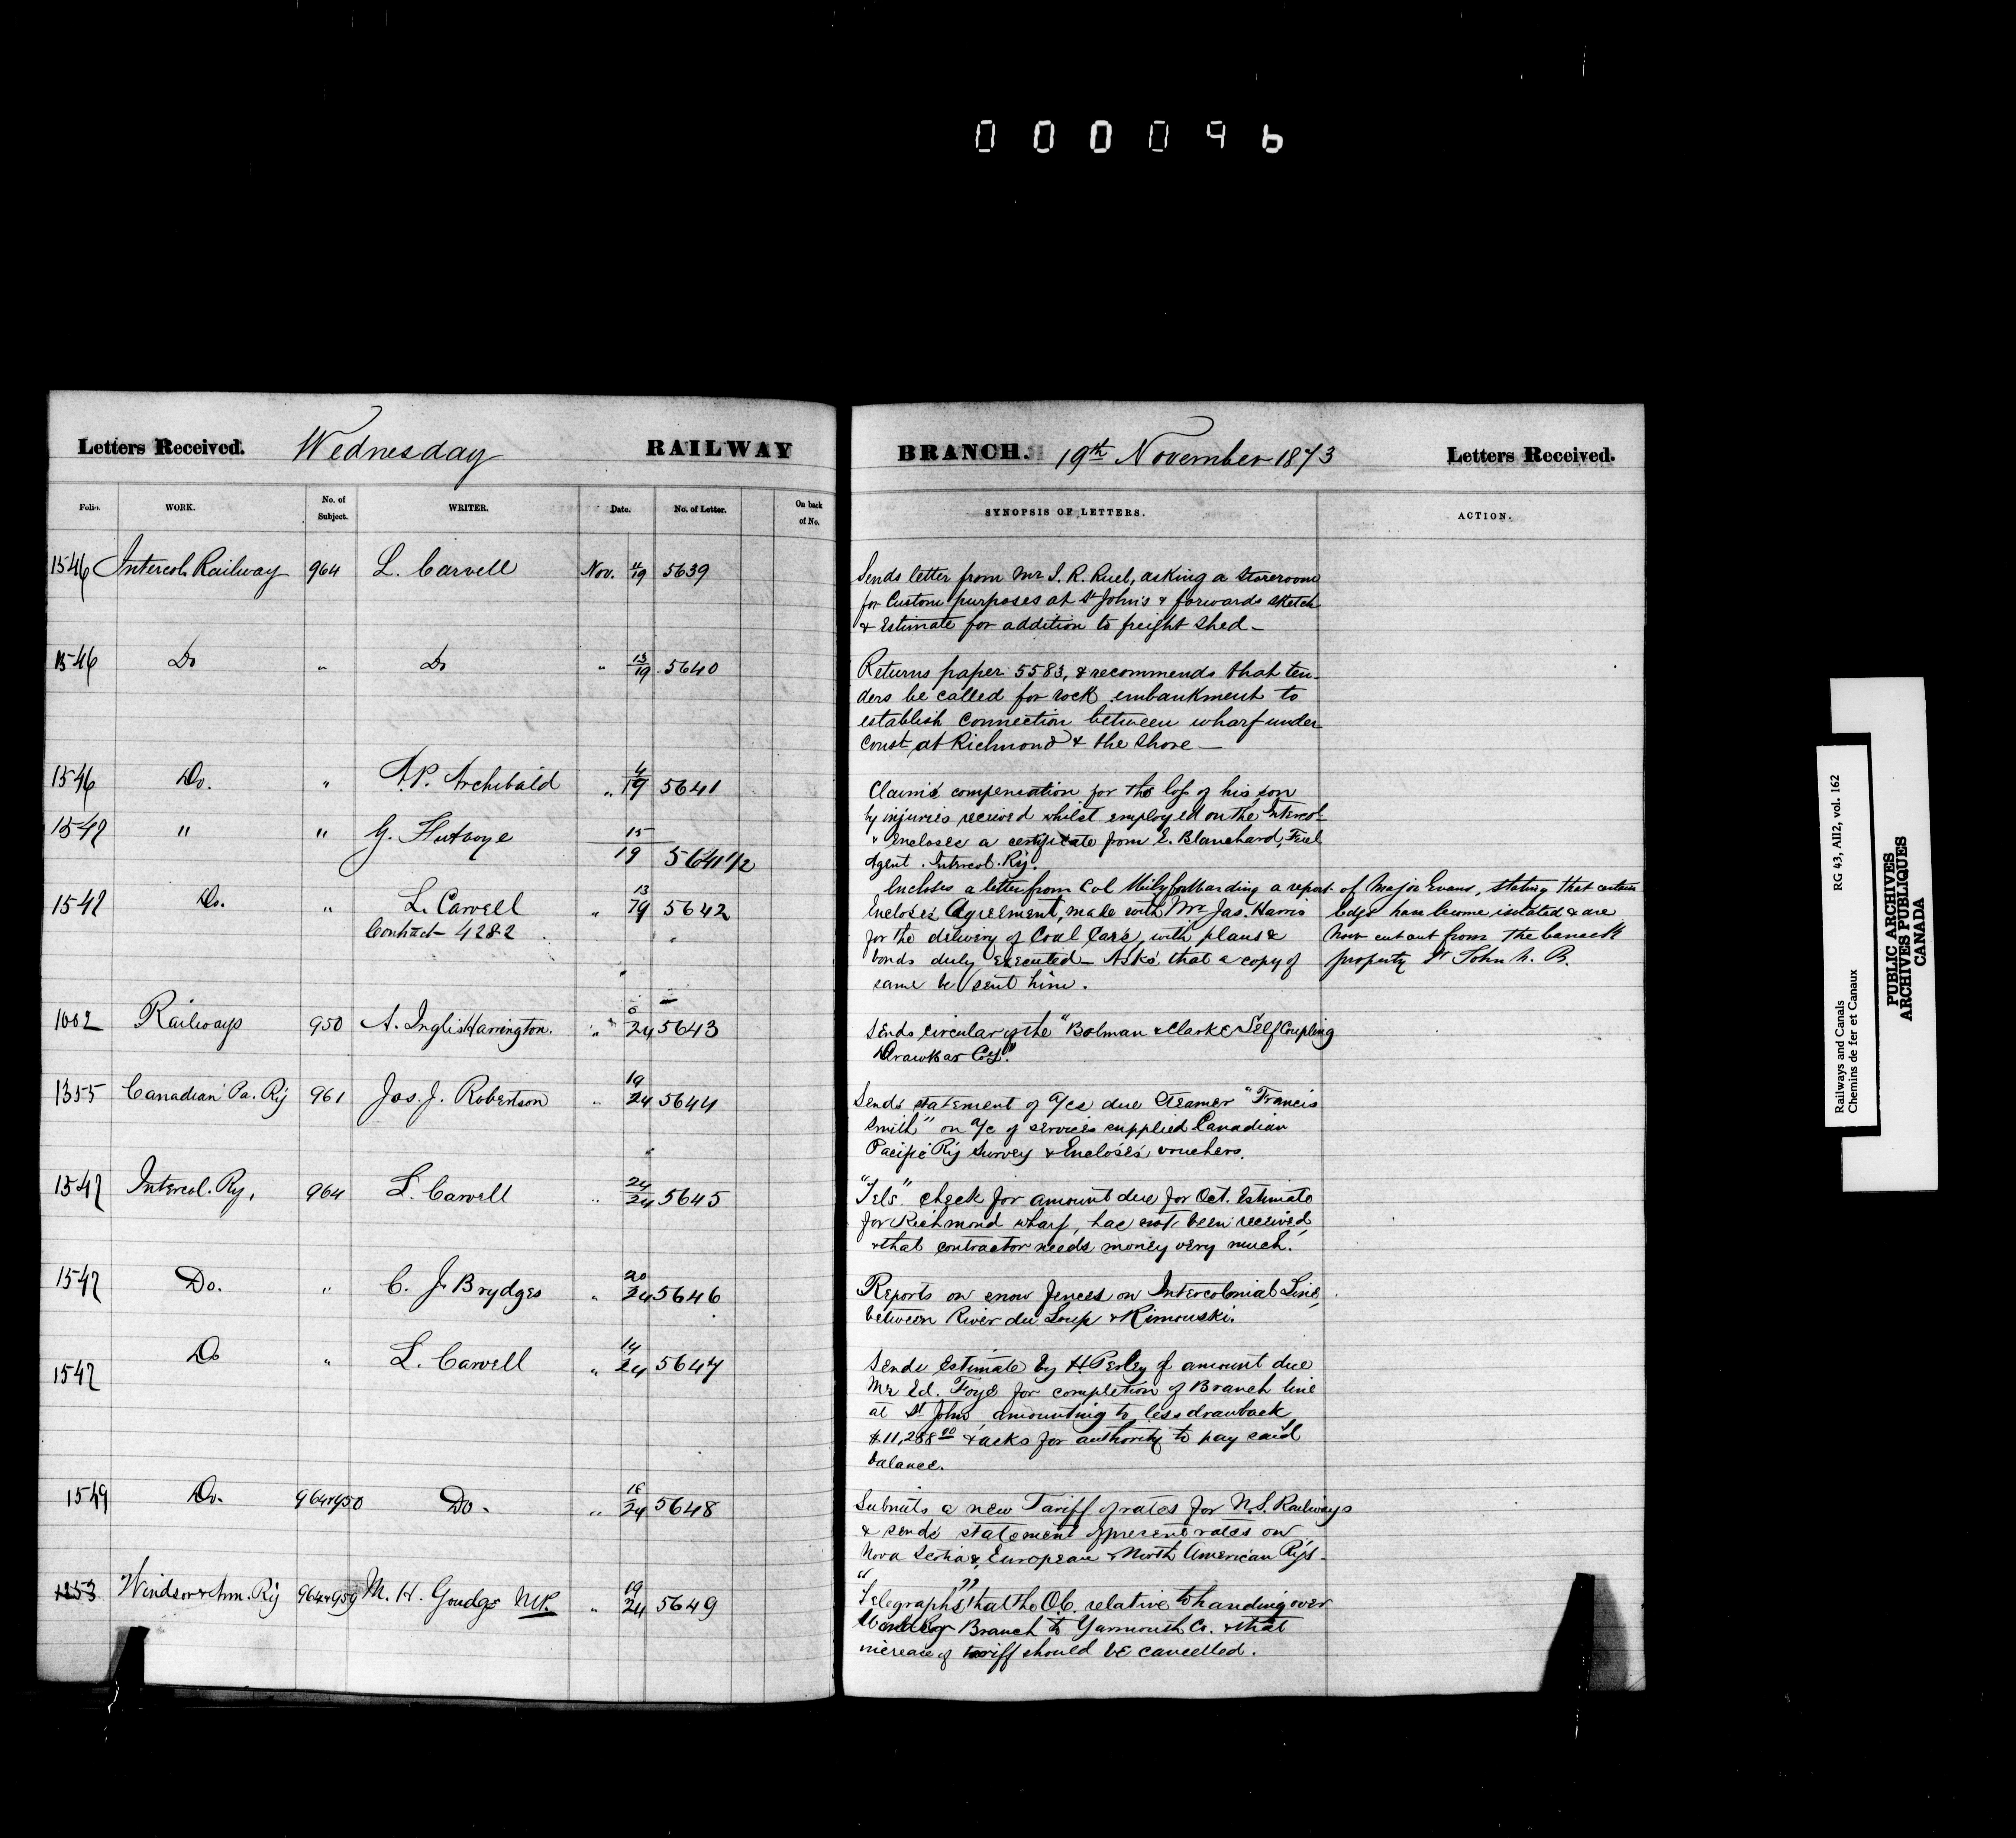 000096
Letters Received. Wednesday RAILWAY BRANCH. 19th November 1873 Letters Received.
Folio. WORK. No. of Subject. WRITER. Date. No. of Letter. On back of No. SYNOPSIS OF LETTERS. ACTION.
1546 Intercol. Railway 964 L. Carvell Nov. 11/19 5639
Sends letter from Mr J. R. Ruel, asking a storeroom
for Custom purposes at St John's & forwards sketch
& Estimate for addition to freight shed_
1546 Do " Do " 13/19 5640
Returns paper 5583, & recommends that ten-
ders be called for rock embankment to
establish connection between wharf under
const. at Richmond & the shore_
1546 Do. " A.P. Archibald " 4/19 5641
Claims compensation for the loss of his son
by injuries received whilst employed on the Intercol.
& encloses a certificate from E. Blanchard, Fuel
Agent. Intercol. Ry.
1547 " " G. Futvoye 15/19 5641 1/2
Encloses a letter from Col forwarding a report of Major Evans, stating that certain
have become isolated & are
now cut out from the
property St John N. B.
1547 Do. " L. Carvell " 13/19 5642
Contract 4282
Encloses Agreement, made with Mr Jas. Harris
for the delivery of Coal Cars, with plans &
bonds duly executed_ Asks that a copy of
same be sent him.
1002 Railways 950 A. Inglis Harrington. " 6/24 5643
Sends circular of the "Bolman & Clarke Self Coupling
Drawbar Cy."
1355 Canadian Pa. Ry 961 Jos. J. Robertson " 19/24 5644
Sends statement of a/cs due Steamer "Francis
Smith" on a/c of services supplied Canadian
Pacific Ry Survey & Encloses vouchers.
1547 Intercol. Ry. 964 L. Carvell " 24/24 5645
"Tels." check for amount due for Oct. Estimate
for Richmond wharf, has not been received,
& that contractor needs money very much.
1547 Do. " C. J. Brydges " 20/24 5646
Reports on snow fences on Intercolonial Line,
between River du Loup & Rimouski.
1547 Do " L. Carvell " 14/24 5647
Sends Estimate by H Perley of amount due
Mr Ed. Foye for completion of Branch line
at St John, amounting to, less drawback
$11,258 & asks for authority to pay said
balance.
1549 Do. 964 & 950 Do. " 18/24 5648
Submits a new Tariff of rates for N.S. Railways
& sends statement of present rates on
Nova Scotia & European & North American Rys.
1253 Windsor & Ann. Ry 964 & 959 M. H. Goudge MP. " 19/24 5649
"Telegraphs" that the O.C. relative to handing over
Windsor Branch to Yarmouth Co. & that
increase of tariff should be cancelled.
Railways and Canals RG 43, AII2, vol. 162
Chemins de fer et Canaux
PUBLIC ARCHIVES
ARCHIVES PUBLIQUES
CANADA